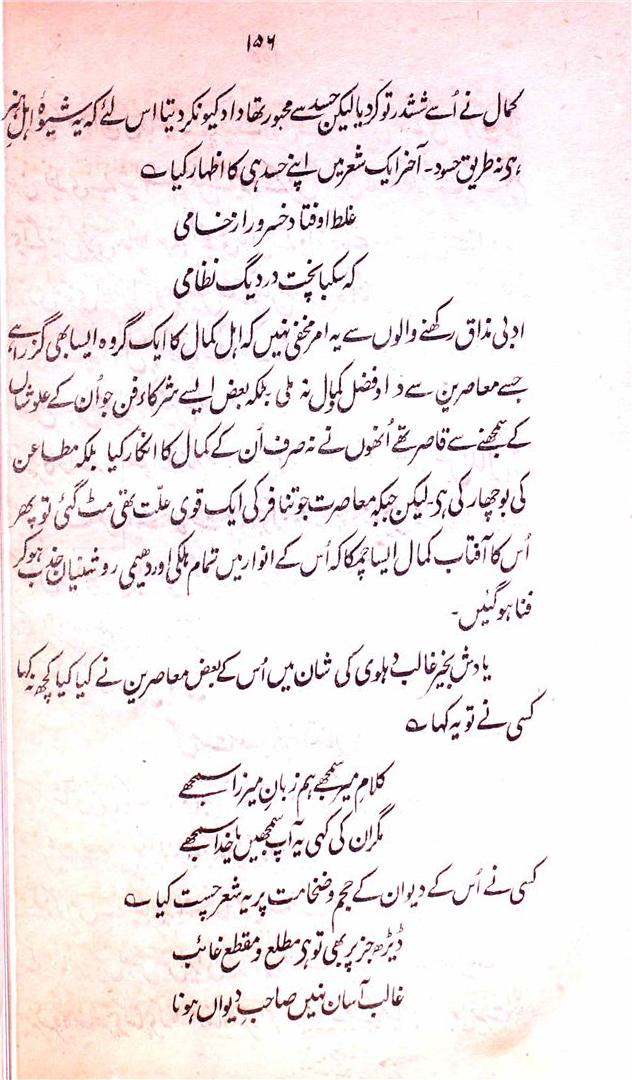 ۱۵۶
کمال نے اُسے ششدر تو کر دیا لیکن حسد سے مجبور تھا داد کیونکر دیتا اس لئے کہ یہ شیوۂ اہلِ ہنر
ہی نہ طریق حسود۔ آخر ایک شعر میں اپنے حسد ہی کا اظہار کیا ؎
غلط اوفتاد خسرو را ز خامی
کہ سکبا پخت در دیگ نظامی
ادبی مذاق رکھنے والوں سے یہ امر مخفی نہیں کہ اہل کمال کا ایک گروہ ایسا بھی گزرا ہے
جسے معاصرین سے داد فضل و کمال نہ ملی بلکہ بعض ایسے شرکاء فن جو اُن کے علو شان
کے سمجھنے سے قاصر تھے اُنھوں نے نہ صرف اُن کے کمال کا انکار کیا بلکہ مطاعن
کی بوچھار کی ہی۔ لیکن جبکہ معاصرت جو تنافر کی ایک قوی علّت تھی مٹ گئی تو پھر
اُس کا آفتاب کمال ایسا چمکا کہ اُس کے انوار میں تمام ہلکی اور دھیمی روشنیاں جذب ہو کر
فنا ہو گئیں۔
یادش بخیر غالب دہلوی کی شان میں اُس کے بعض معاصرین نے کیا کیا کچھ نہ کہا
کسی نے تو یہ کہا ؎
کلامِ میر سمجھے ہم زبانِ میرزا سمجھے
مگر ان کی کہی یہ آپ سمجھیں یا خدا سمجھے
کسی نے اُس کے دیوان کے حجم و ضخامت پر یہ شعر چست کیا ؎
ڈیڑھ جز پر بھی تو ہی مطلع و مقطع غائب
غالب آسان نہیں صاحبِ دیواں ہونا